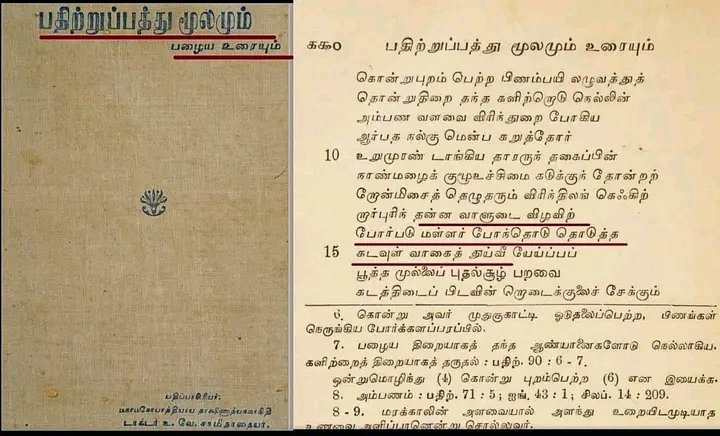 பதிற்றுப்பத்து மூலமும்
பழைய உரையும்
பதிப்பாசிரியர்:
மகாமகோபாத்தியாய தாக்ஷிணாத்யகலாநிதி
டாக்டர் உ. வே. சாமிநாதையர்.
ககௐ பதிற்றுப்பத்து மூலமும் உரையும்
கொன்றுபுறம் பெற்ற பிணம்பயி லழுவத்துத்
தொன்றுதிறை தந்த களிற்றொடு நெல்லின்
அம்பண வளவை விரிந்துறை போகிய
ஆர்பத நல்கு மென்ப கறுத்தோர்
10 உறுமுரண் டாங்கிய தாரருந் தகைப்பின்
நாண்மழைக் குழூஉச்சிமை கடுக்குந் தோன்றற்
றோன்மிசைத் தெழுதரும் விரிந்திலங் கெஃகிற்
றார்புரிந் தன்ன வாளுடை விழவிற்
போர்படு மள்ளர் போந்தொடு தொடுத்த
15 கடவுள் வாகைத் துய்வீ யேய்ப்பப்
பூத்த முல்லைப் புதல்சூழ் பறவை
கடத்திடைப் பிடவின் றொடைக்குலைச் சேக்கும்
6. கொன்று அவர் முதுகுகாட்டி ஓடுதலைப்பெற்ற, பிணங்கள்
நெருங்கிய போர்க்களப்பரப்பில்.
7. பழைய திறையாகத் தந்த ஆண்யானைகளோடு நெல்லாகிய.
களிற்றைத் திறையாகத் தருதல் : பதிற். 90 : 6 - 7.
ஒன்றுமொழிந்து (4) கொன்று புறம்பெற்ற (6) என இயைக்க.
8. அம்பணம் : பதிற். 71 : 5 ; ஐங். 43 : 1 ; சிலப். 14 : 209.
8 - 9. மரக்காலின் அளவையால் அளந்து உறையிடமுடியாத
உணவை அளிப்பானென்று சொல்லுவர்.